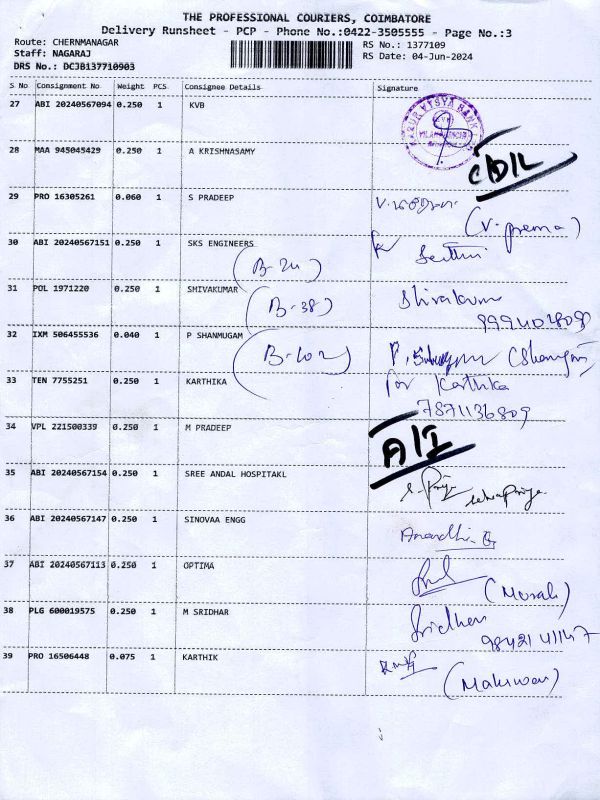 THE PROFESSIONAL COURIERS, COIMBATORE
Delivery Runsheet - PCP - Phone No.:0422-3505555 - Page No.:3
Route: CHERNMANAGAR
Staff: NAGARAJ
DRS No.: DCJB137710903
RS No.: 1377109
RS Date: 04-Jun-2024
S No Consignment No Weight PCS Consignee Details Signature
27 ABI 20240567094 0.250 1 KVB
28 MAA 945045429 0.250 1 A KRISHNASAMY
29 PRO 16305261 0.060 1 S PRADEEP
(V. prema)
30 ABI 20240567151 0.250 1 SKS ENGINEERS
(B-24)
31 POL 1971220 0.250 1 SHIVAKUMAR
(B-38)
32 IXM 506455536 0.040 1 P SHANMUGAM
(B-102)
33 TEN 7755251 0.250 1 KARTHIKA for Karthika
7871136809
34 VPL 221500339 0.250 1 M PRADEEP
35 ABI 20240567154 0.250 1 SREE ANDAL HOSPITAKL
36 ABI 20240567147 0.250 1 SINOVAA ENGG
37 ABI 20240567113 0.250 1 OPTIMA
(Murali)
38 PLG 600019575 0.250 1 M SRIDHAR Sridhar
39 PRO 16506448 0.075 1 KARTHIK